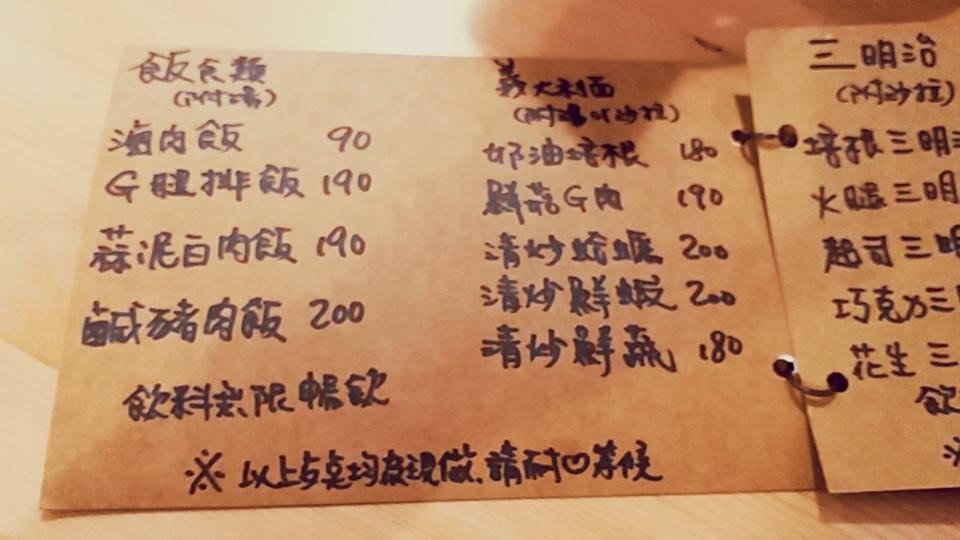 飯食類
(附湯)
滷肉飯 90
G腿排飯 190
蒜泥白肉飯 190
鹹豬肉飯 200
飲料無限暢飲
義大利面
(附湯or沙拉)
奶油培根 180
鮮菇G肉 190
清炒蛤蠣 200
清炒鮮蝦 200
清炒鮮蔬 180
※以上步奌均為現做,請耐♡等候
三明治
(附沙拉)
培根三明
火腿三明
起司三明
巧克力三
花生三
飲
※